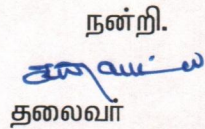 நன்றி.
தலைவர்